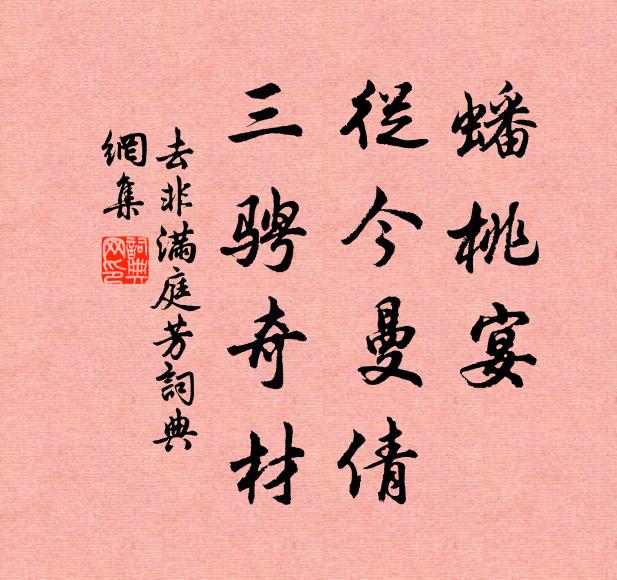 蟠桃宴
從今曼倩
三騁奇材
去非滿庭芳詞典
網集
詞典網印